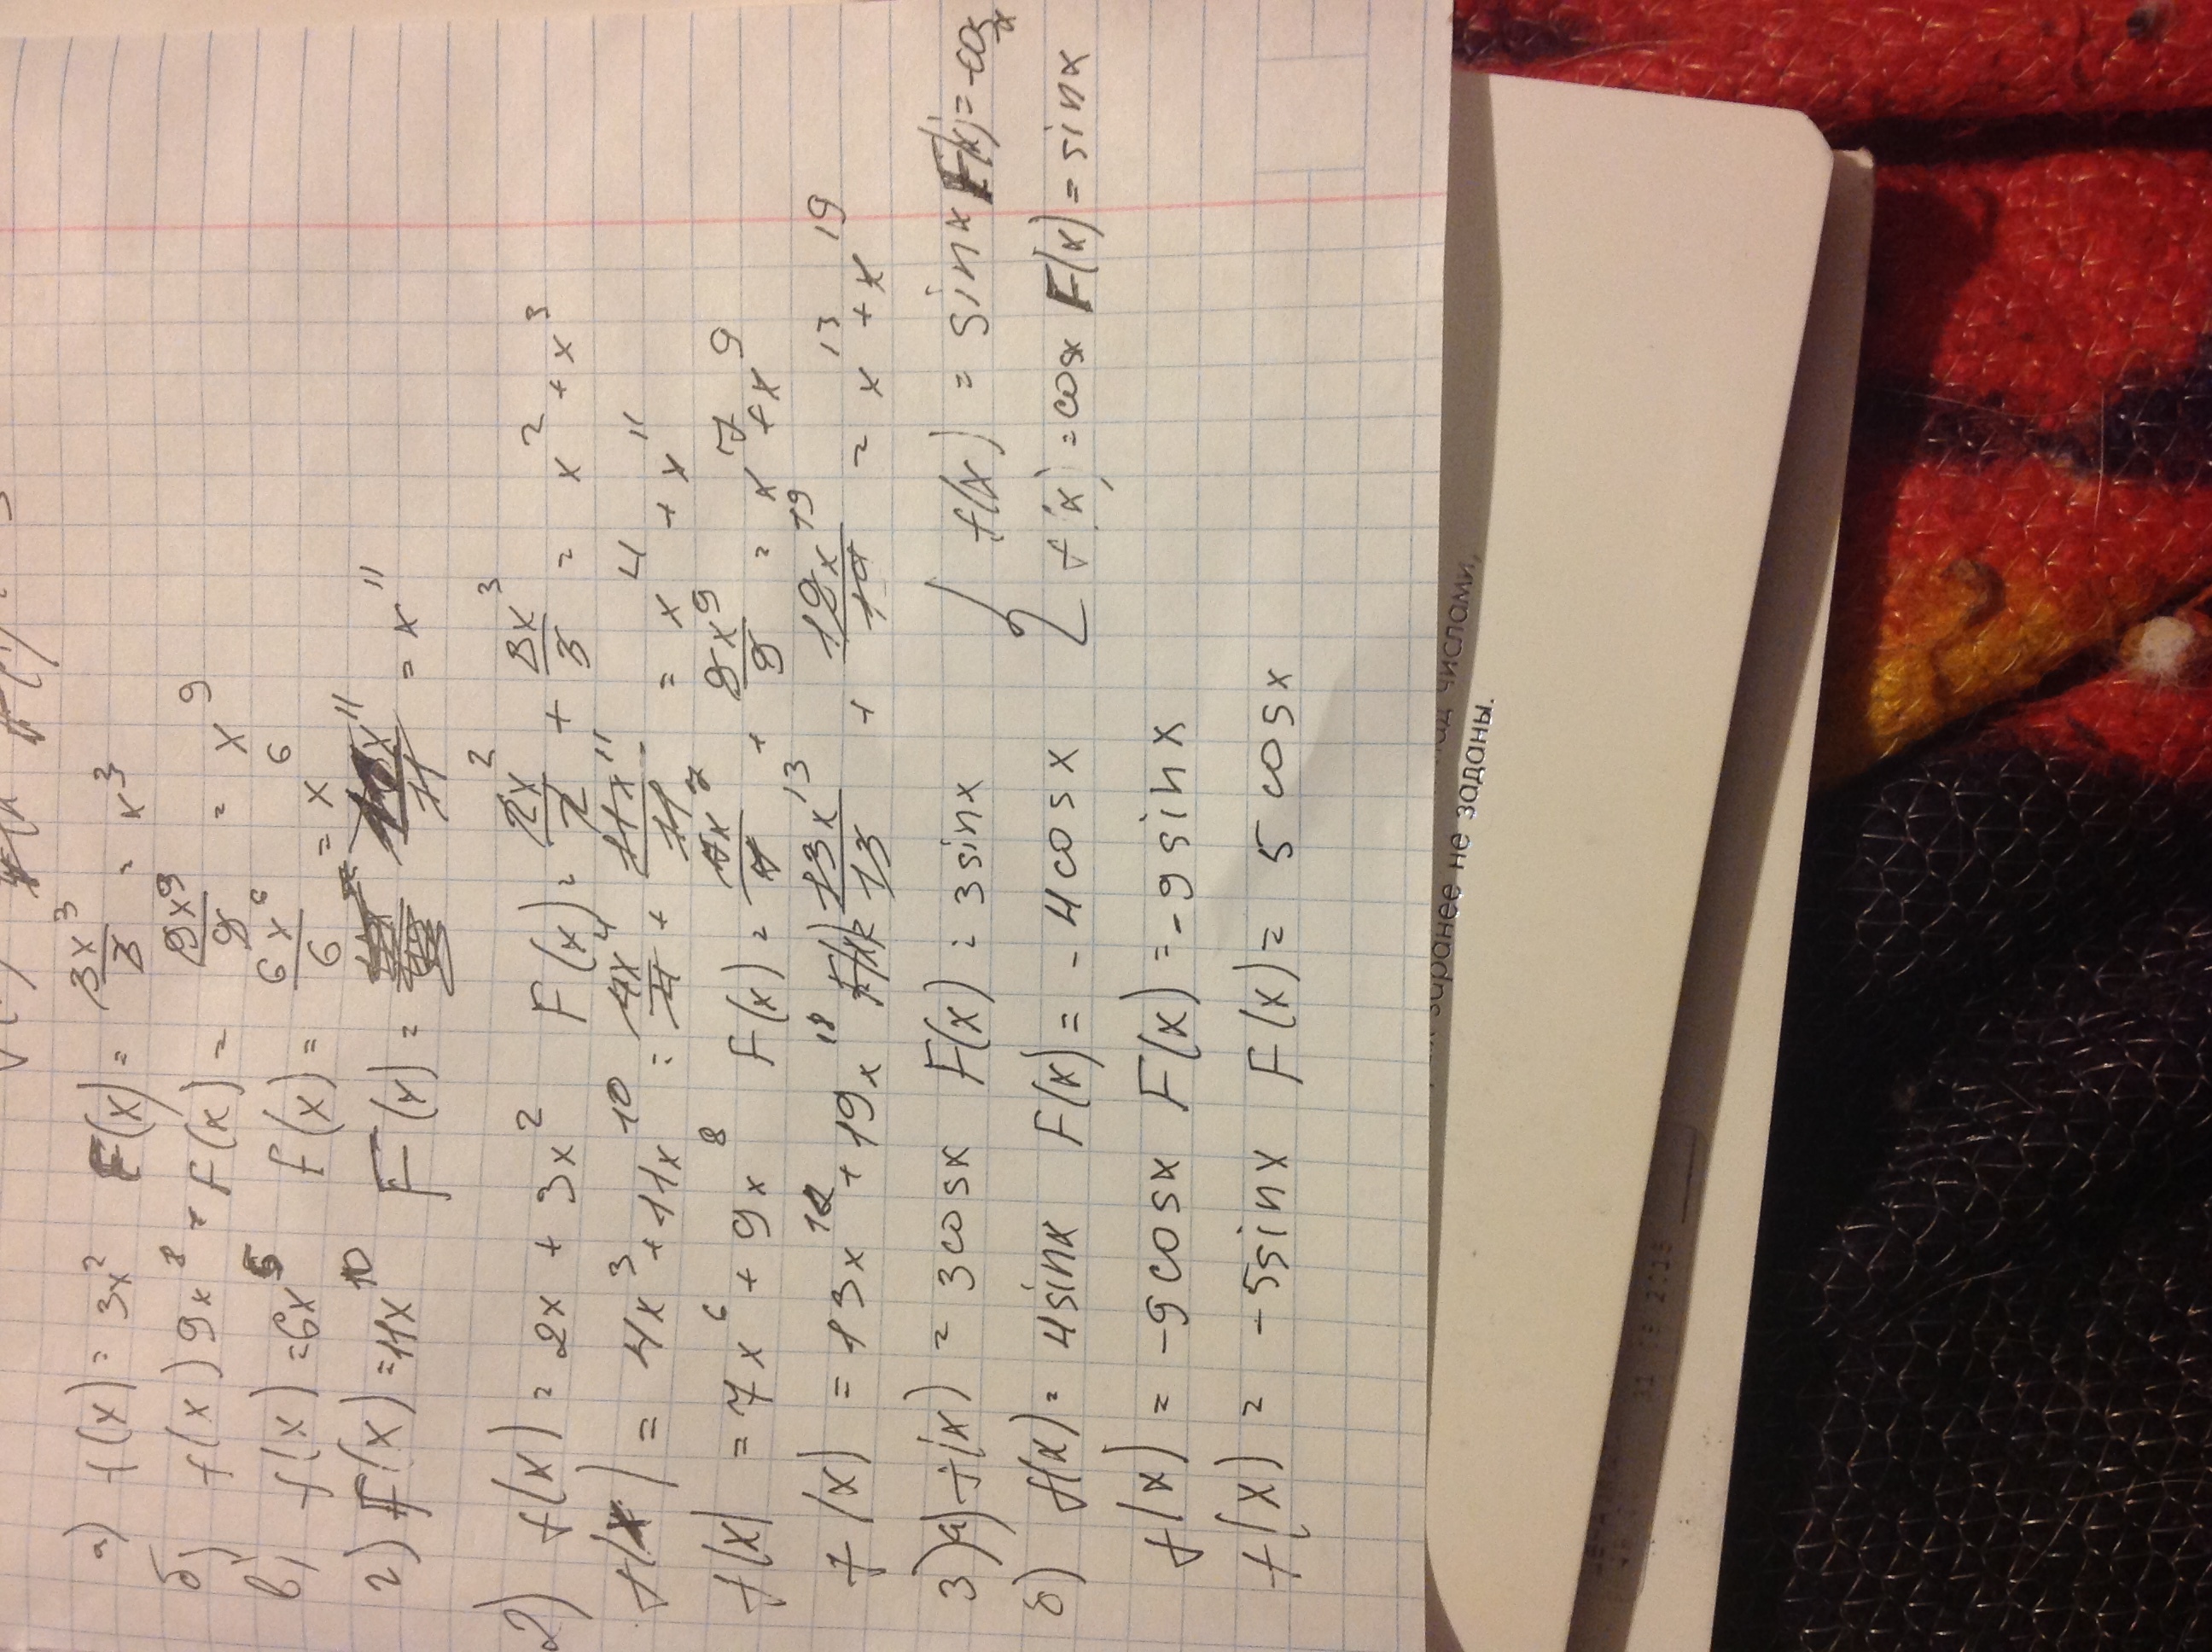 а) f(x) = 3x² F(x) = 3x³/3 = x³
б) f(x) 9x⁸ = F(x) = 9x⁹/9 = x⁹
в) f(x) = 6x⁵ f(x) = 6x⁶/6 = x⁶
г) F(x) = 11x¹⁰ F(x) = x¹¹
2) f(x) = 2x + 3x² F(x) = 2x²/2 + 3x³/3 = x² + x³
f(x) = 4x³ + 11x¹⁰ = 4x⁴/4 + 11x¹¹/11 = x⁴ + x¹¹
f(x) = 7x⁶ + 9x⁸ F(x) = 7x⁷/7 + 9x⁹/9 = x⁷ + x⁹
f(x) = 13x¹² + 19x¹⁸ 13x¹³/13 + 19x¹⁹/19 = x¹³ + x¹⁹
3) а) f(x) = 3cosx F(x) = 3sinx { f(x) = sinx F(x) = -cosx
б) f(x) = 4sinx F(x) = -4cosx f(x) = cosx F(x) = sinx
f(x) = -9cosx F(x) = -9sinx
f(x) = -5sinx F(x) = 5cosx
числами,
заранее не заданы.